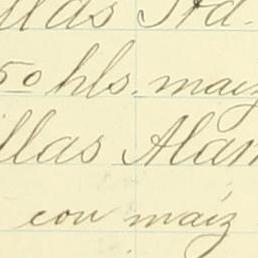 llas Std.
50 hls. maiz
llas Alam
con maiz